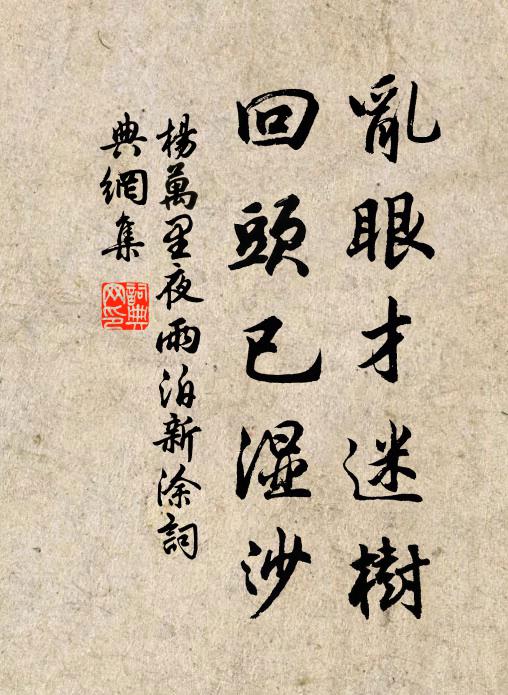 亂眼才迷樹
回頭已濕沙
楊萬里夜雨泊新淦詞
典網集
詞典網印